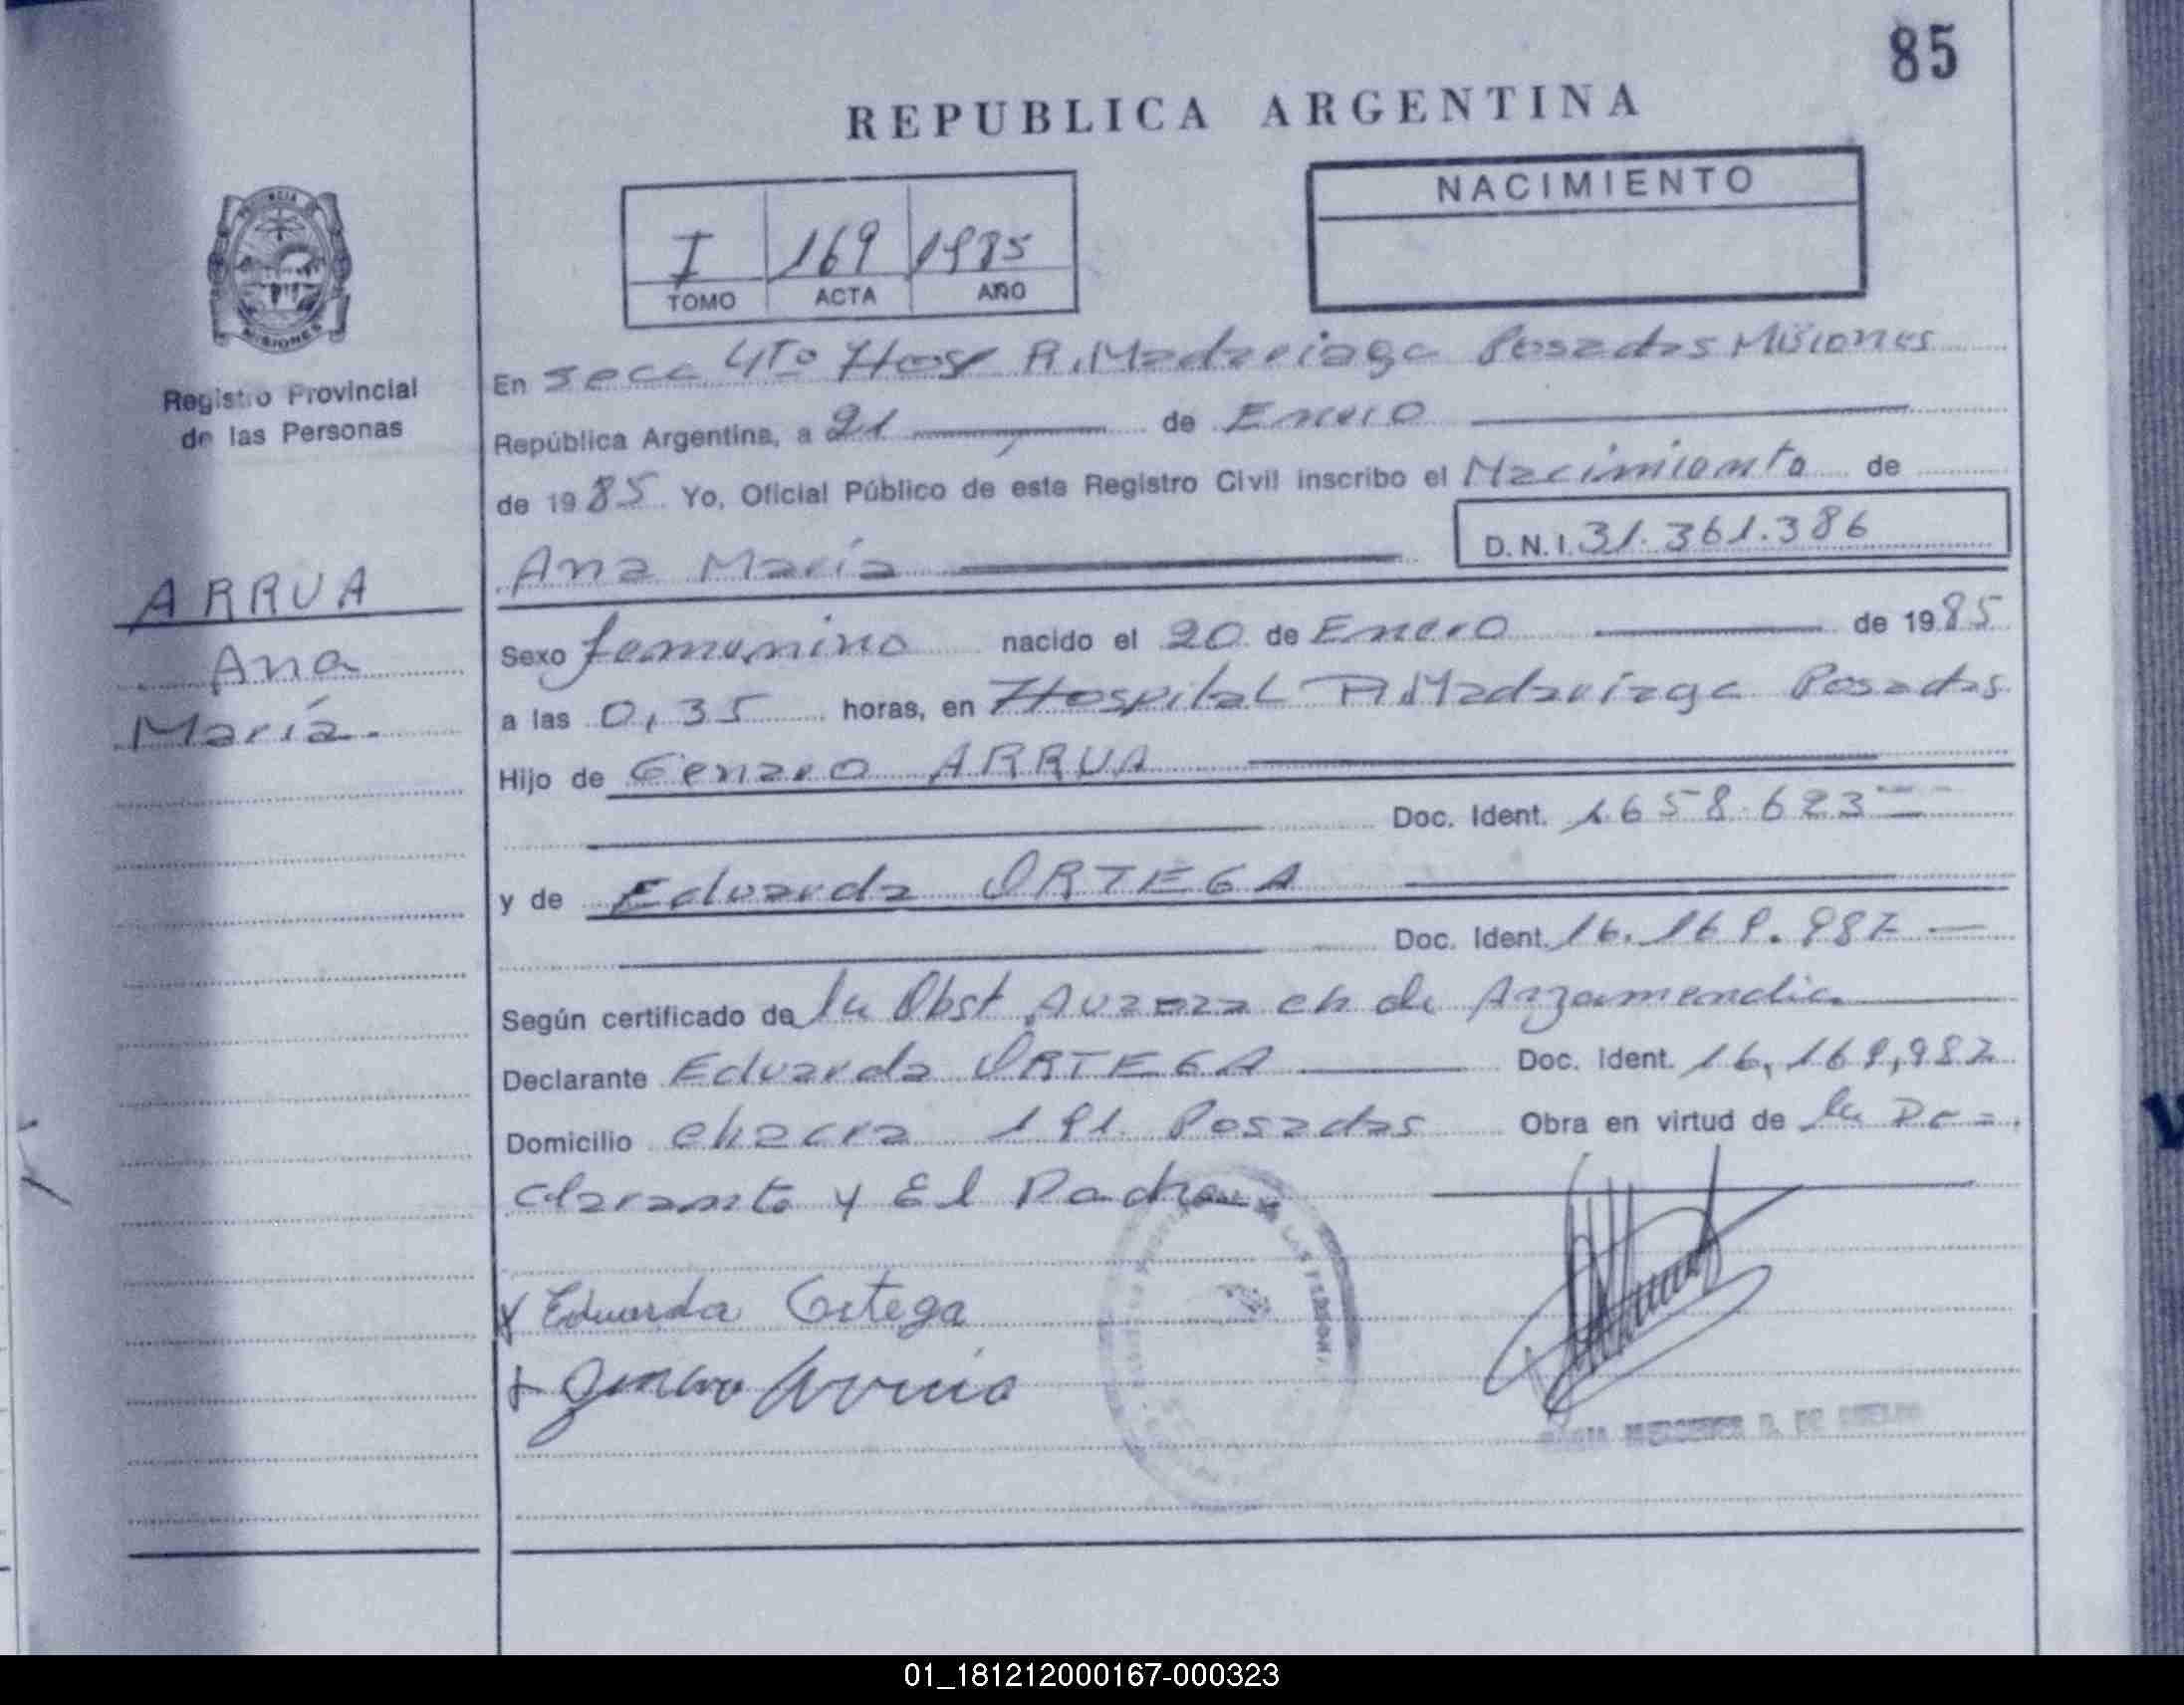 85
REPUBLICA ARGENTINA
PROVINCIA DE
MISIONES
Registro Provincial
de las Personas
I 169 1985
TOMO ACTA AÑO
NACIMIENTO
En Secc 4to Hosp R. Madariaga Posadas Misiones
República Argentina, a 21 de Enero
de 1985 Yo, Oficial Público de este Registro Civil inscribo el Nacimiento de
Ana María D.N.I. 31.361.386
ARRUA
Ana
María.
Sexo femenino nacido el 20 de Enero de 1985
a las 0,35 horas, en Hospital R. Madariaga Posadas
Hijo de Genaro ARRUA
Doc. Ident. 1658.623
y de Eduarda ORTEGA
Doc. Ident. 16.169.987
Según certificado de la Obst Aurora ch de Arzamendia
Declarante Eduarda ORTEGA Doc. Ident. 16,169,987
Domicilio chacra 191 Posadas Obra en virtud de la De=
clarante y El Padre
x Eduarda Ortega
+ Genaro Arrua
01_181212000167-000323